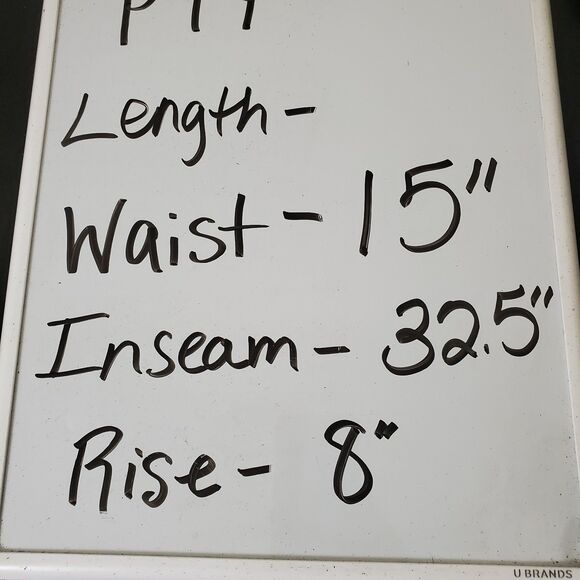 Length -
Waist - 15"
Inseam - 32.5"
Rise - 8"
U BRANDS